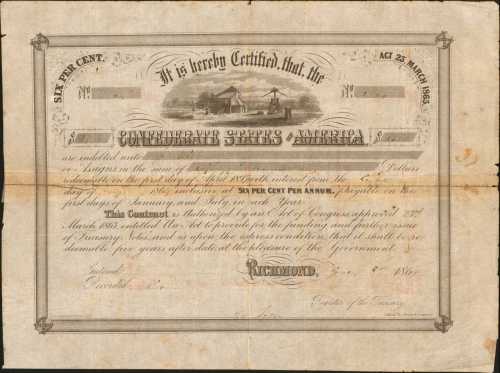 SIX PER CENT.
It is hereby Certified, that, the
ACT 23 MARCH 1863.
No.
No.
$
CONFEDERATE STATES OF AMERICA
$
are indebted unto
or Assigns in the sum of Dollars
redeemable on the first day of April 18 with interest from the
day of inclusive at SIX PER CENT PER ANNUM, payable on the
first days of January, and July, in each Year.
This Contract is Authorized by an Act of Congress approved 23rd
March 1863, entitled An Act to provide for the funding and further issue
of Treasury Notes, and is upon the express condition, that it shall be re-
deemable five years after date, at the pleasure of the Government.
RICHMOND, 186
Entered
Recorded
Register of the Treasury